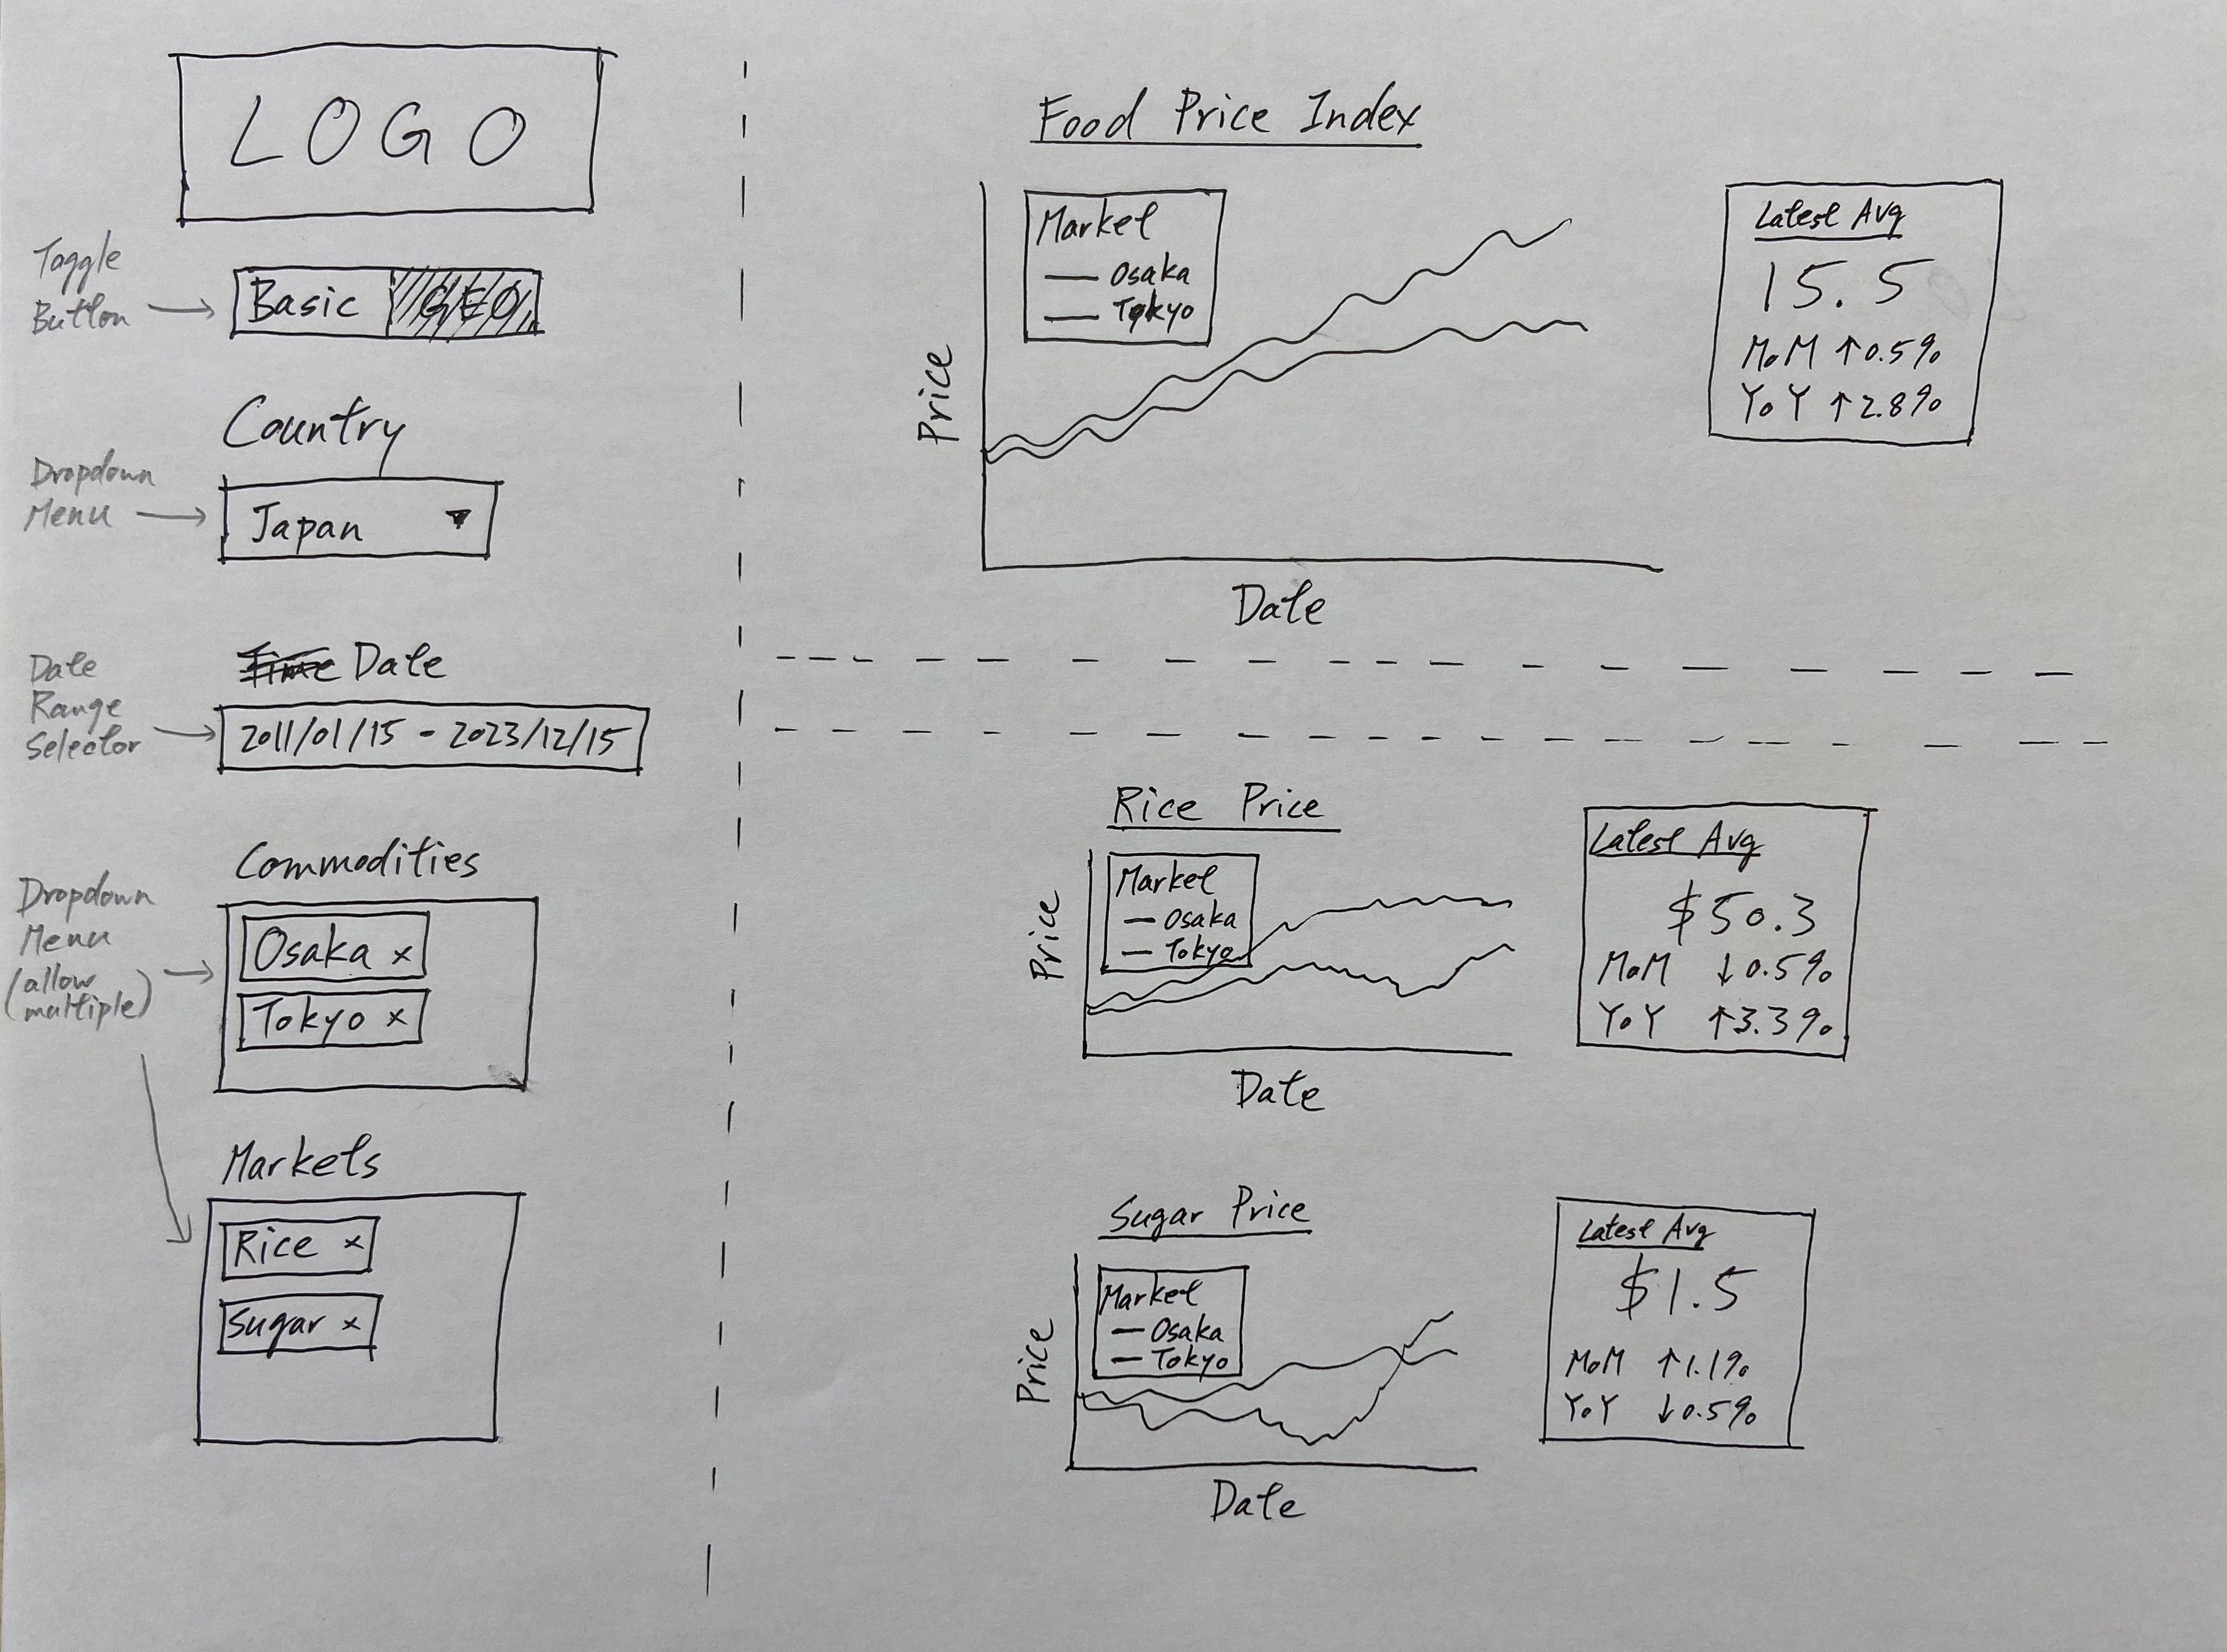 LOGO
Toggle
Button
Basic
GEO
Country
Dropdown
Menu
Japan
Time Date
Date
Range
Selector
2011/01/15 - 2023/12/15
Commodities
Dropdown
Menu
(allow
multiple)
Osaka ×
Tokyo ×
Markets
Rice ×
Sugar ×
Food Price Index
Market
Osaka
Tokyo
Price
Date
Latest Avg
15.5
MoM ↑0.5%
YoY ↑2.8%
Rice Price
Market
Osaka
Tokyo
Price
Date
Latest Avg
$50.3
MoM ↓0.5%
YoY ↑3.3%
Sugar Price
Market
Osaka
Tokyo
Price
Date
Latest Avg
$1.5
MoM ↑1.1%
YoY ↓0.5%